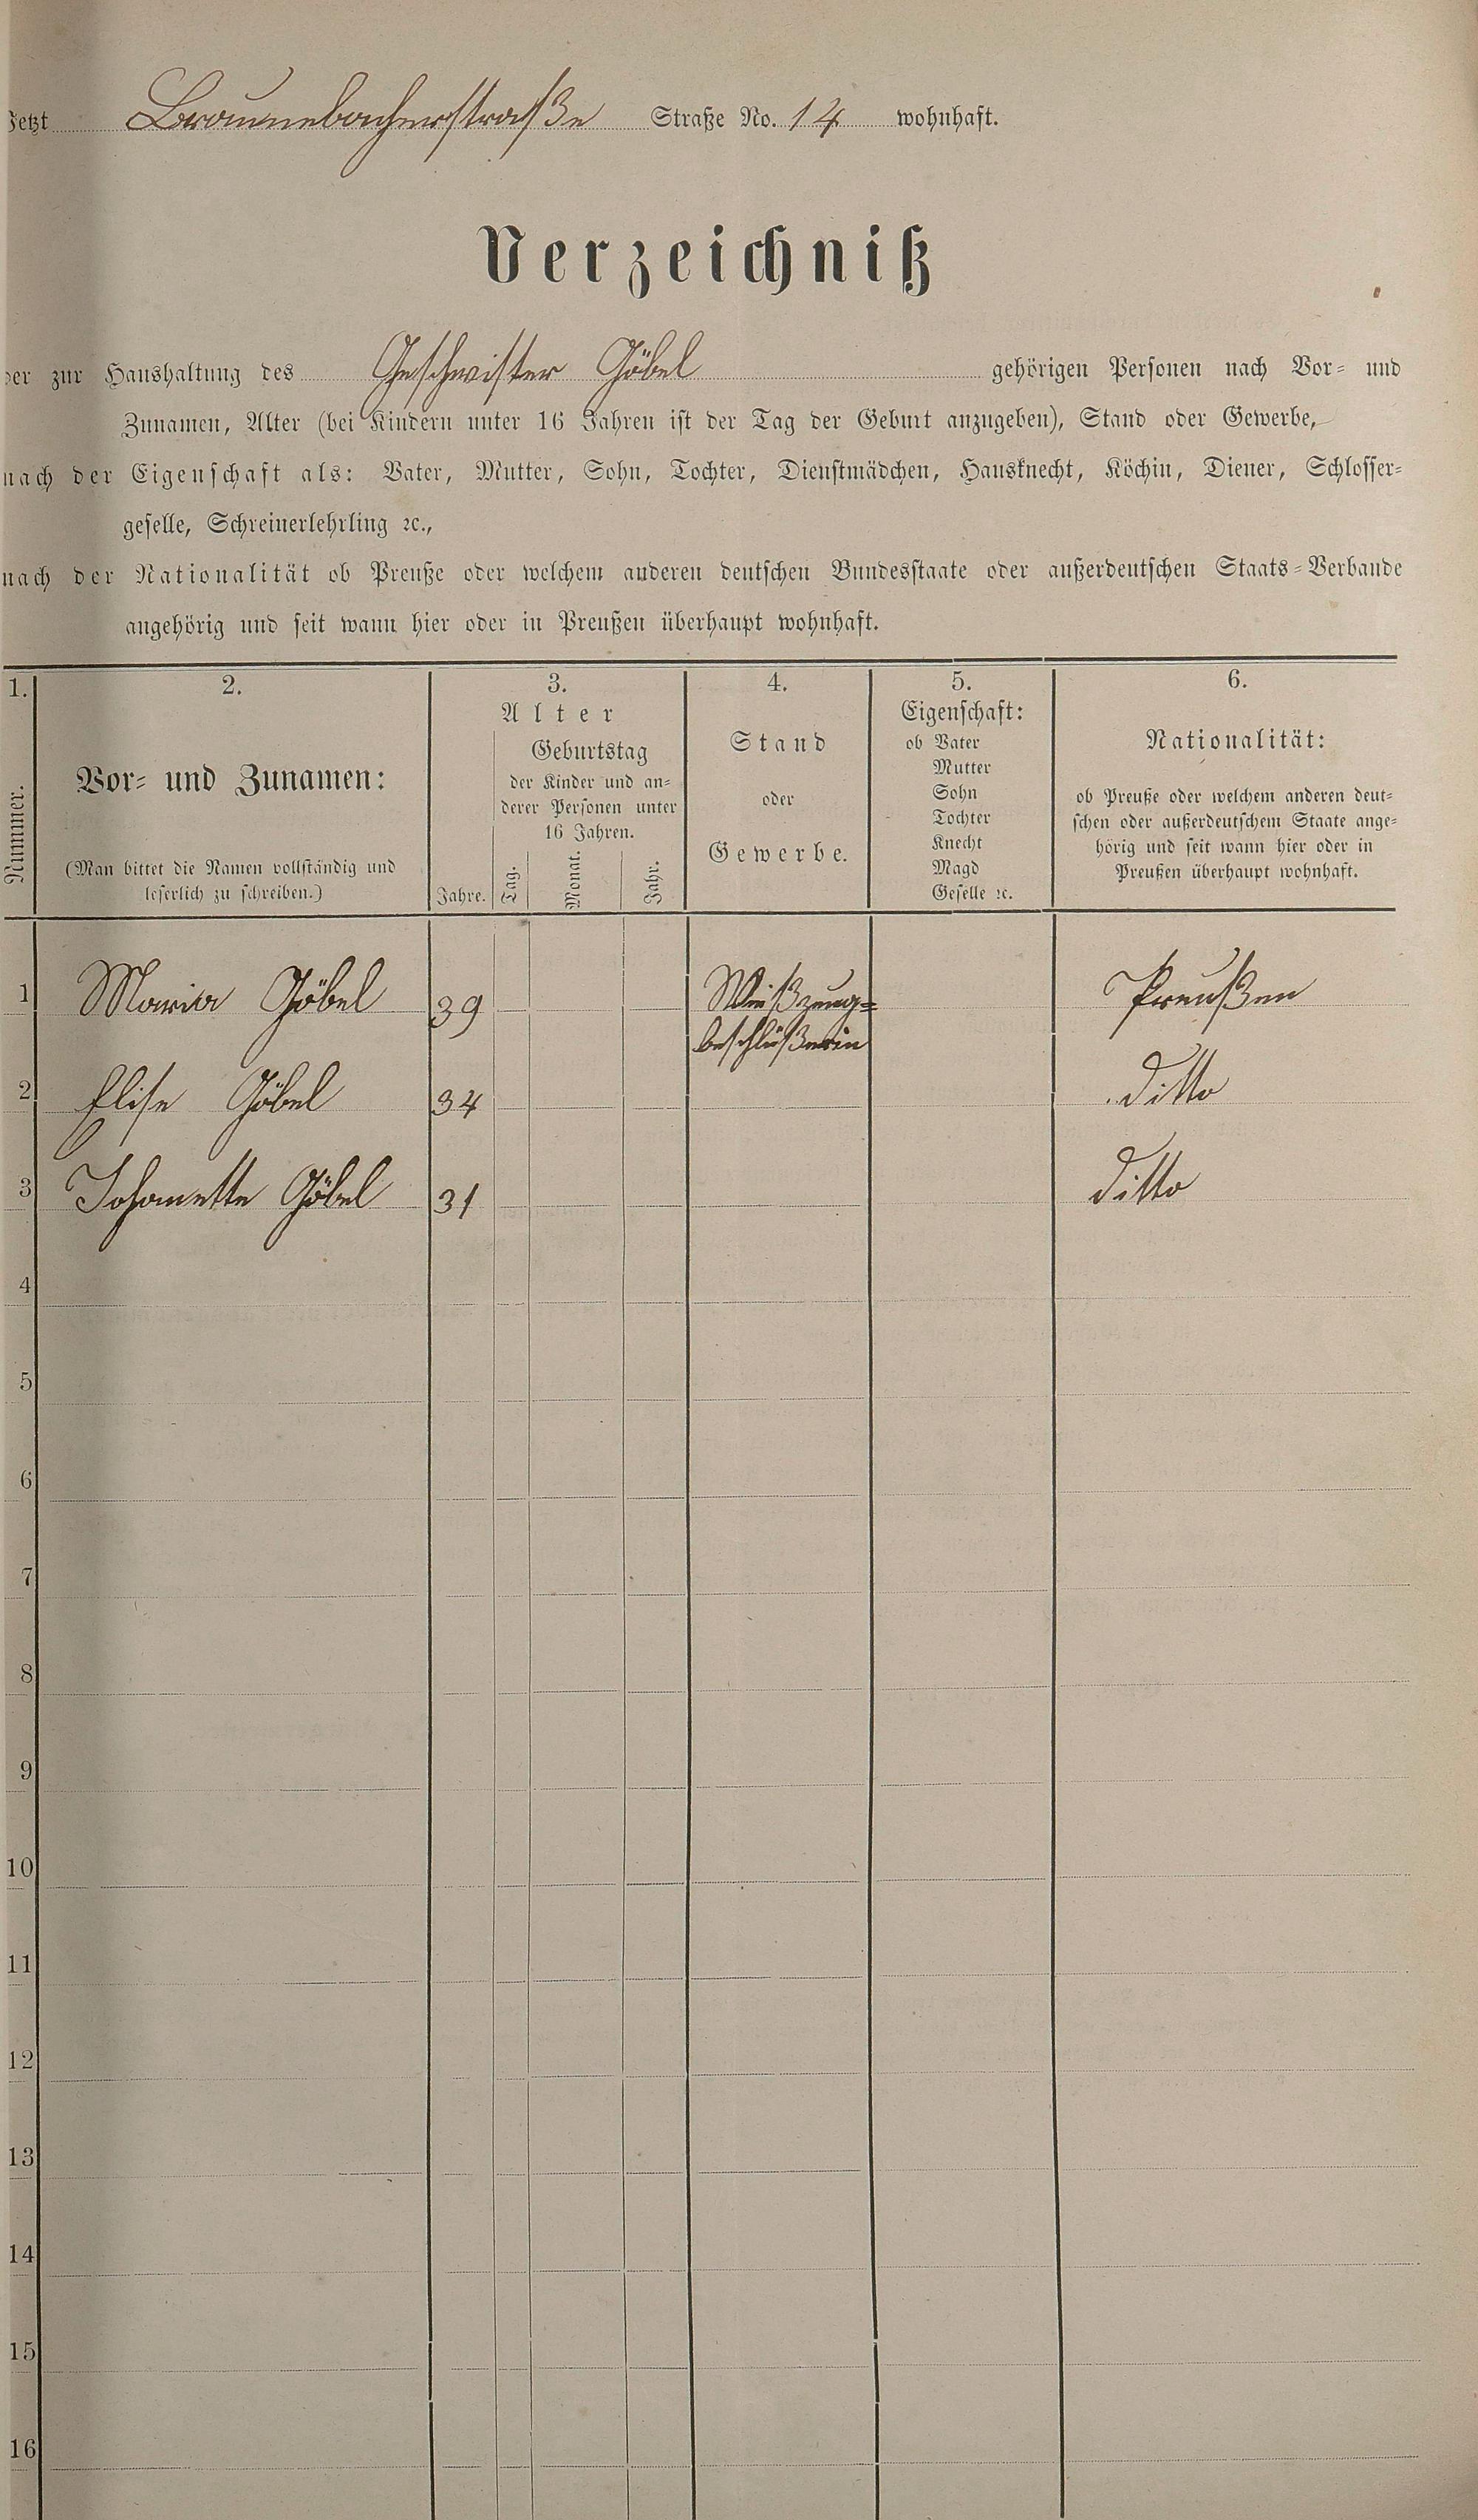 Jetzt Braunebacherstraße Straße No. 14 wohnhaft.
Verzeichniß
der zur Haushaltung des Geschwister Göbel gehörigen Personen nach Vor- und
Zunamen, Alter (bei Kindern unter 16 Jahren ist der Tag der Geburt anzugeben), Stand oder Gewerbe,
nach der Eigenschaft als: Vater, Mutter, Sohn, Tochter, Dienstmädchen, Hausknecht, Köchin, Diener, Schlosser-
geselle, Schreinerlehrling ꝛc.,
nach der Nationalität ob Preuße oder welchem anderen deutschen Bundesstaate oder außerdeutschen Staats-Verbande
angehörig und seit wann hier oder in Preußen überhaupt wohnhaft.
1.
Nummer.
2.
Vor- und Zunamen:
(Man bittet die Namen vollständig und
leserlich zu schreiben.)
3.
Alter
Jahre.
Geburtstag
der Kinder und an-
derer Personen unter
16 Jahren.
Tag.
Monat.
Jahr.
4.
Stand
oder
Gewerbe.
5.
Eigenschaft:
ob Vater
Mutter
Sohn
Tochter
Knecht
Magd
Geselle ꝛc.
6.
Nationalität:
ob Preuße oder welchem anderen deut-
schen oder außerdeutschem Staate ange-
hörig und seit wann hier oder in
Preußen überhaupt wohnhaft.
1 Maria Göbel 39 Weißzeug- Preußen
beschlüßerin
2 Elise Göbel 34 ditto
3 Johanette Göbel 31 ditto
4
5
6
7
8
9
10
11
12
13
14
15
16